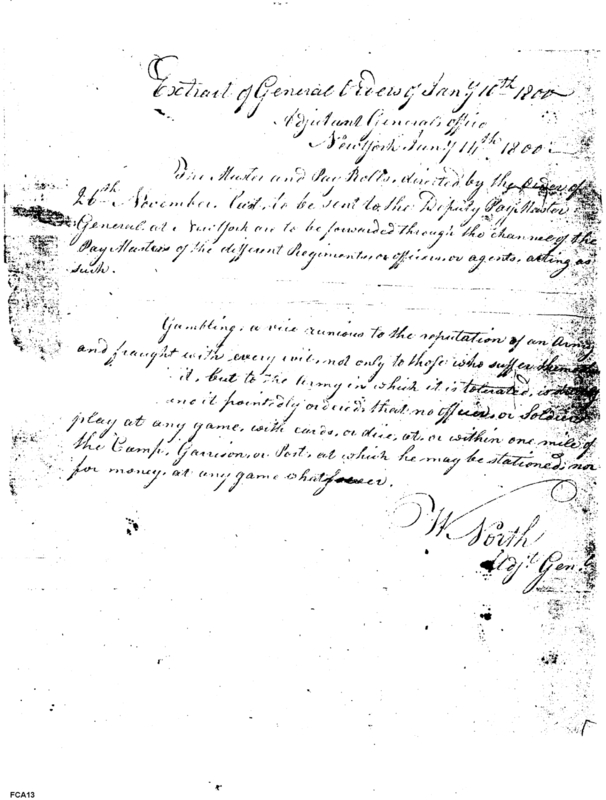 Extract of General Orders of Jany 10th 1800
Adjutant Generals office
New York Jany 14th 1800
The Muster and Pay Rolls, directed by the Order of
26th November last, to be sent to the Deputy Pay Master
General at New York are to be forwarded through the channel of the
Pay Masters of the different Regiments, or officers, or agents, acting as
such.
Gambling, a vice ruinous to the reputation of an Army
and fraught with every evil, not only to those who suffer
it, but to the Army in which it is tolerated, is
and it pointedly ordered, that no officer, or Soldier
play at any game, with cards, or dice, at, or within one mile of
the Camp, Garrison, or Post, at which he may be stationed, nor
for money, at any game whatsoever.
W North
Adjt Genl
FCA13